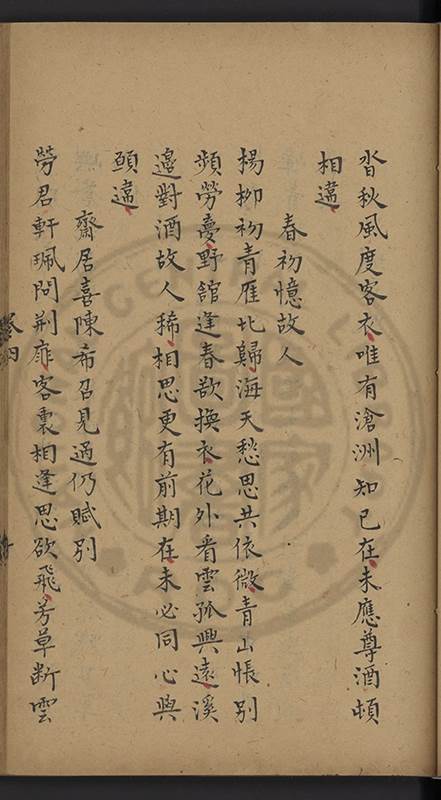 沓秋風度客衣唯有滄洲知己在未應尊酒頓
相違
春初憶故人
楊柳初青雁北歸海天愁思共依微青山悵別
頻勞夢野館逢春欲換衣花外看雲孤興遠溪
邊對酒故人稀相思更有前期在未必同心與
願違
齋居喜陳希召見過仍賦別
勞君軒珮問荆扉客裏相逢思欲飛芳草斷雲